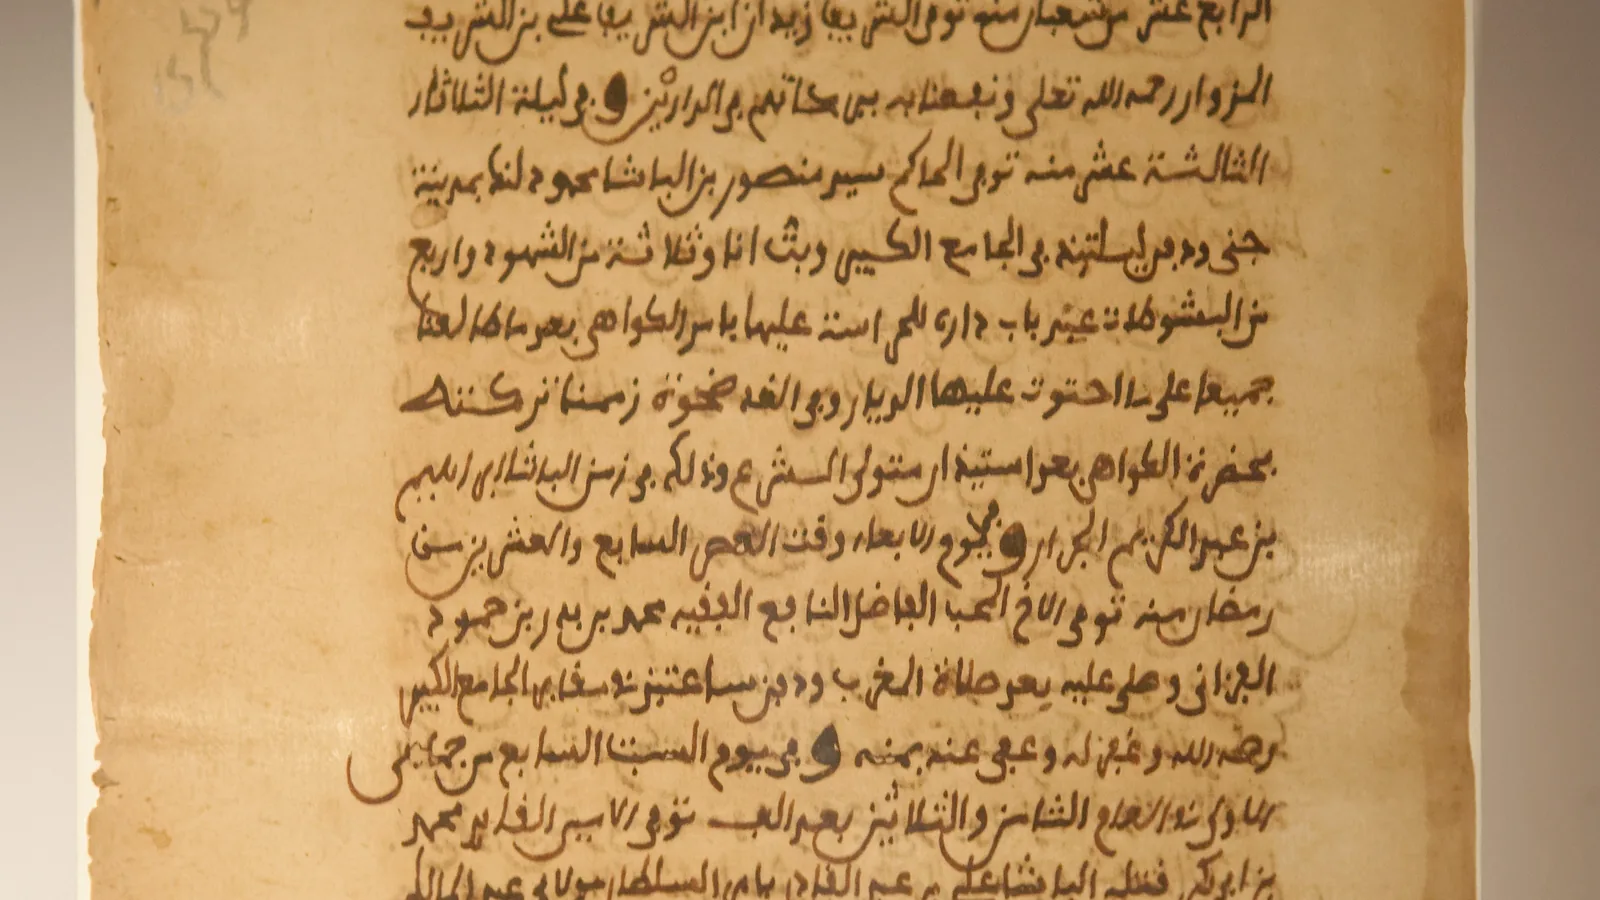 الرابع عشر من شعبان منه توفي الشريف زيدان ابن الشريف علي بن الشريف
المزوار رحمه الله تعلى ونفعنا به ببركاتهم في الدارين وفي ليلة الثلاثاء
الثالثة عشر منه توفي الحاكم سيد منصور بن الباشا محمود لنك بمدينة
جني ودفن ليلتئذ في الجامع الكبير وبت انا وثلاثة من الشهود واربع
من عند باب داره عليها بامر بعد
جميعا على ما احتوت عليها الديار وفي الغد ضحوة زممنا تركته
بحضرة بعد استيذان متولى الشرع وذلك في زمن الباشا ابراهيم
بن عبد الكريم الجرار وفي يوم الاربعاء وقت العصر السابع والعشرين من
رمضان منه توفي الاخ المحب الفاضل النافع الفقيه محمد بن بدر بن حمود
الفزاني وصلى عليه بعد صلاة المغرب ودفن ساعتئذ في الجامع الكبير
رحمه الله وغفر له وعفى عنه بمنه وفي يوم السبت السابع من جمادى
الاولى في العام الثامن والثلاثين بعد الف توفي الامير القايد محمد
بن ابي بكر قتله الباشا علي بن عبد القادر بامر السلطان مولاي عبد المالك